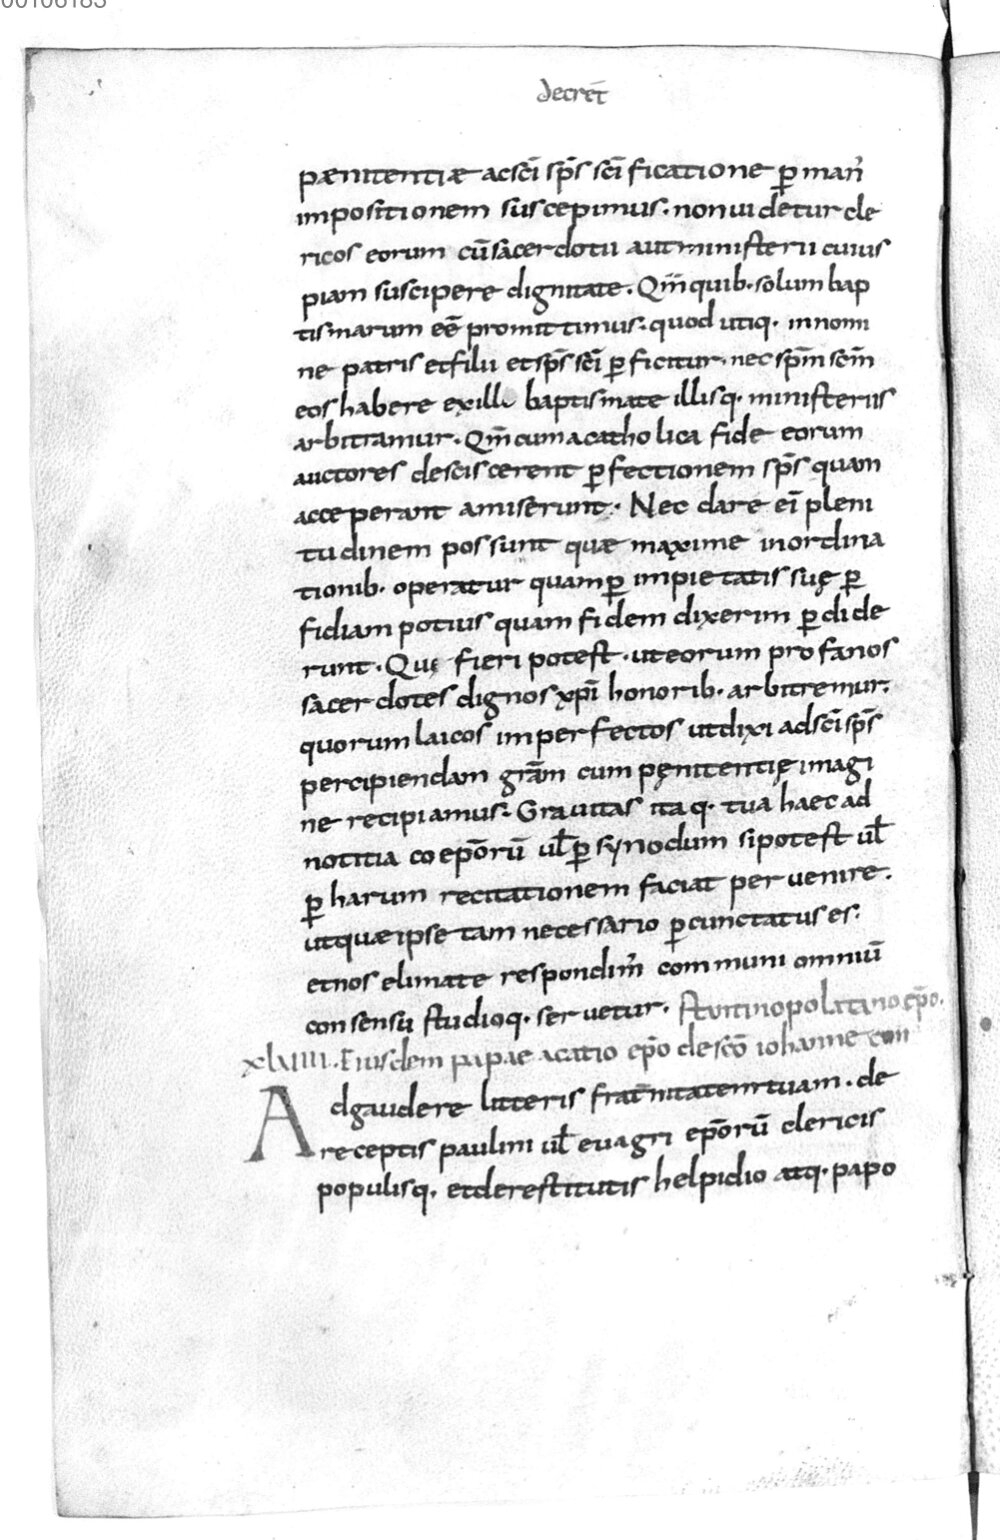 00106183
decret̄
pænitentiæ acsc̄i sp̄s sc̄i ficatione ꝑ man̄
impositionem suscepimus. nonuidetur cle
ricos eorum cū sacerdotii aut ministerii cuius
piam suscipere dignitate. Qm̄ quib. solum bap
tismarum eē promittimus. quod utiq. innomi
ne patris etfilii etsp̄s sc̄i ꝑficitur. nec sp̄m scm̄
eos habere exillo baptismate illisq. ministeriis
arbitramur. Qm̄ cum acatholica fide eorum
auctores desciscerent ꝑfectionem sp̄s quam
acceperant amiserunt. Nec dare eī pleni
tudinem possunt quæ maxime inordina
tionib. operatur quam ꝑ impietatis suę ꝑ
fidiam potius quam fidem dixerim ꝑdide
runt. Quę fieri potest. uteorum profanos
sacerdotes dignos xp̄i honorib. arbitremur.
quorum laicos imperfectos utdixi adsc̄i sp̄s
percipiendam grām cum pęnitentię imagi
ne recipiamus. Grauitas itaq. tua haec ad
notitia coep̄orū ul̄ ꝑ synodum sipotest ul̄
ꝑ harum recitationem faciat peruenire.
utquæ ipse tam necessario ꝑcunctatus es.
etnos elimate respondim̄ communi omniū
consensu studioq. seruetur. stantinopolitano ep̄o.
xlviiii. Eiusdem papae acatio ep̄o de scō iohanne con
Adgaudere litteris frat̄nitatem tuam. de
receptis paulini ul̄ euagri ep̄orū clericis
populisq. etderestitutis helpidio atq. papo